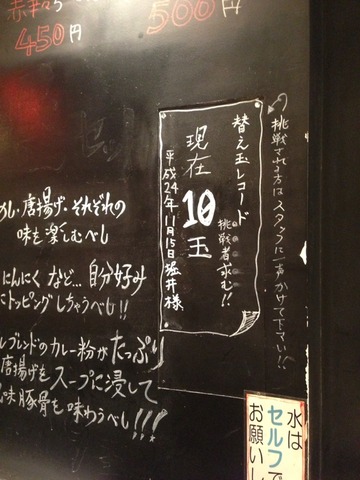 450円
500円
替え玉レコード
挑戦者求む!!
現在10玉
平成24年11月15日堀井様
挑戦される方はスタッフに一声かけて下さい!!
カレー・唐揚げ・それぞれの
味を楽しむべし
にんにくなど…自分好み
にトッピングしちゃうべし!!
ブレンドのカレー粉がたっぷり
唐揚げをスープに浸して
味豚骨を味わうべし!!!
水は
セルフで
お願いし